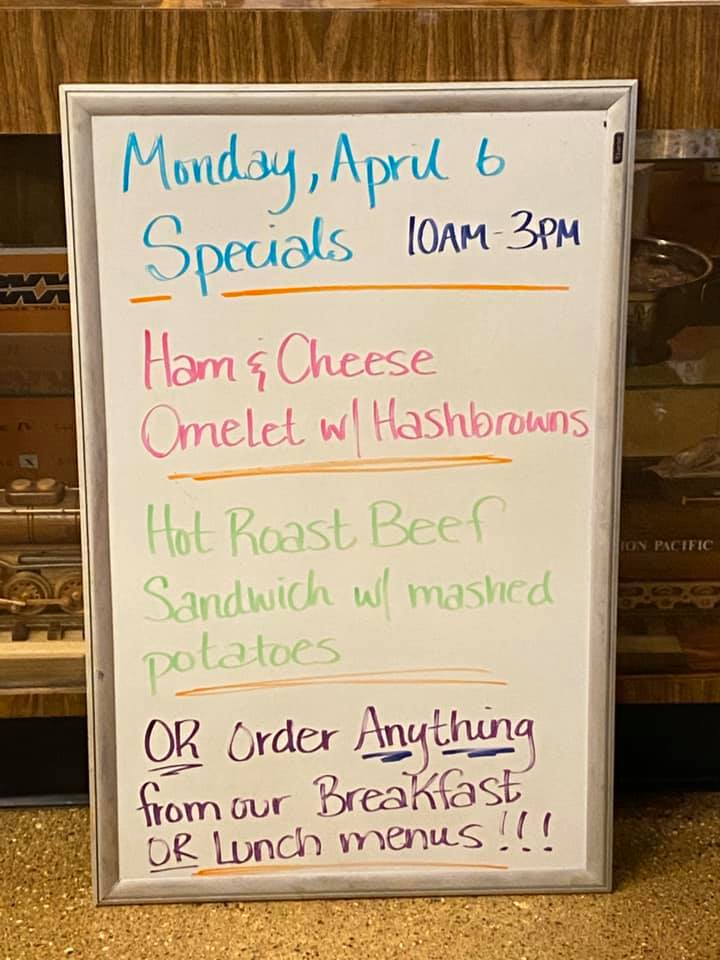 Monday, April 6
Specials 10AM-3PM
Ham & Cheese
Omelet w/ Hashbrowns
Hot Roast Beef
Sandwich w/ mashed
potatoes
OR order Anything
from our Breakfast
OR Lunch menus!!!
ION PACIFIC